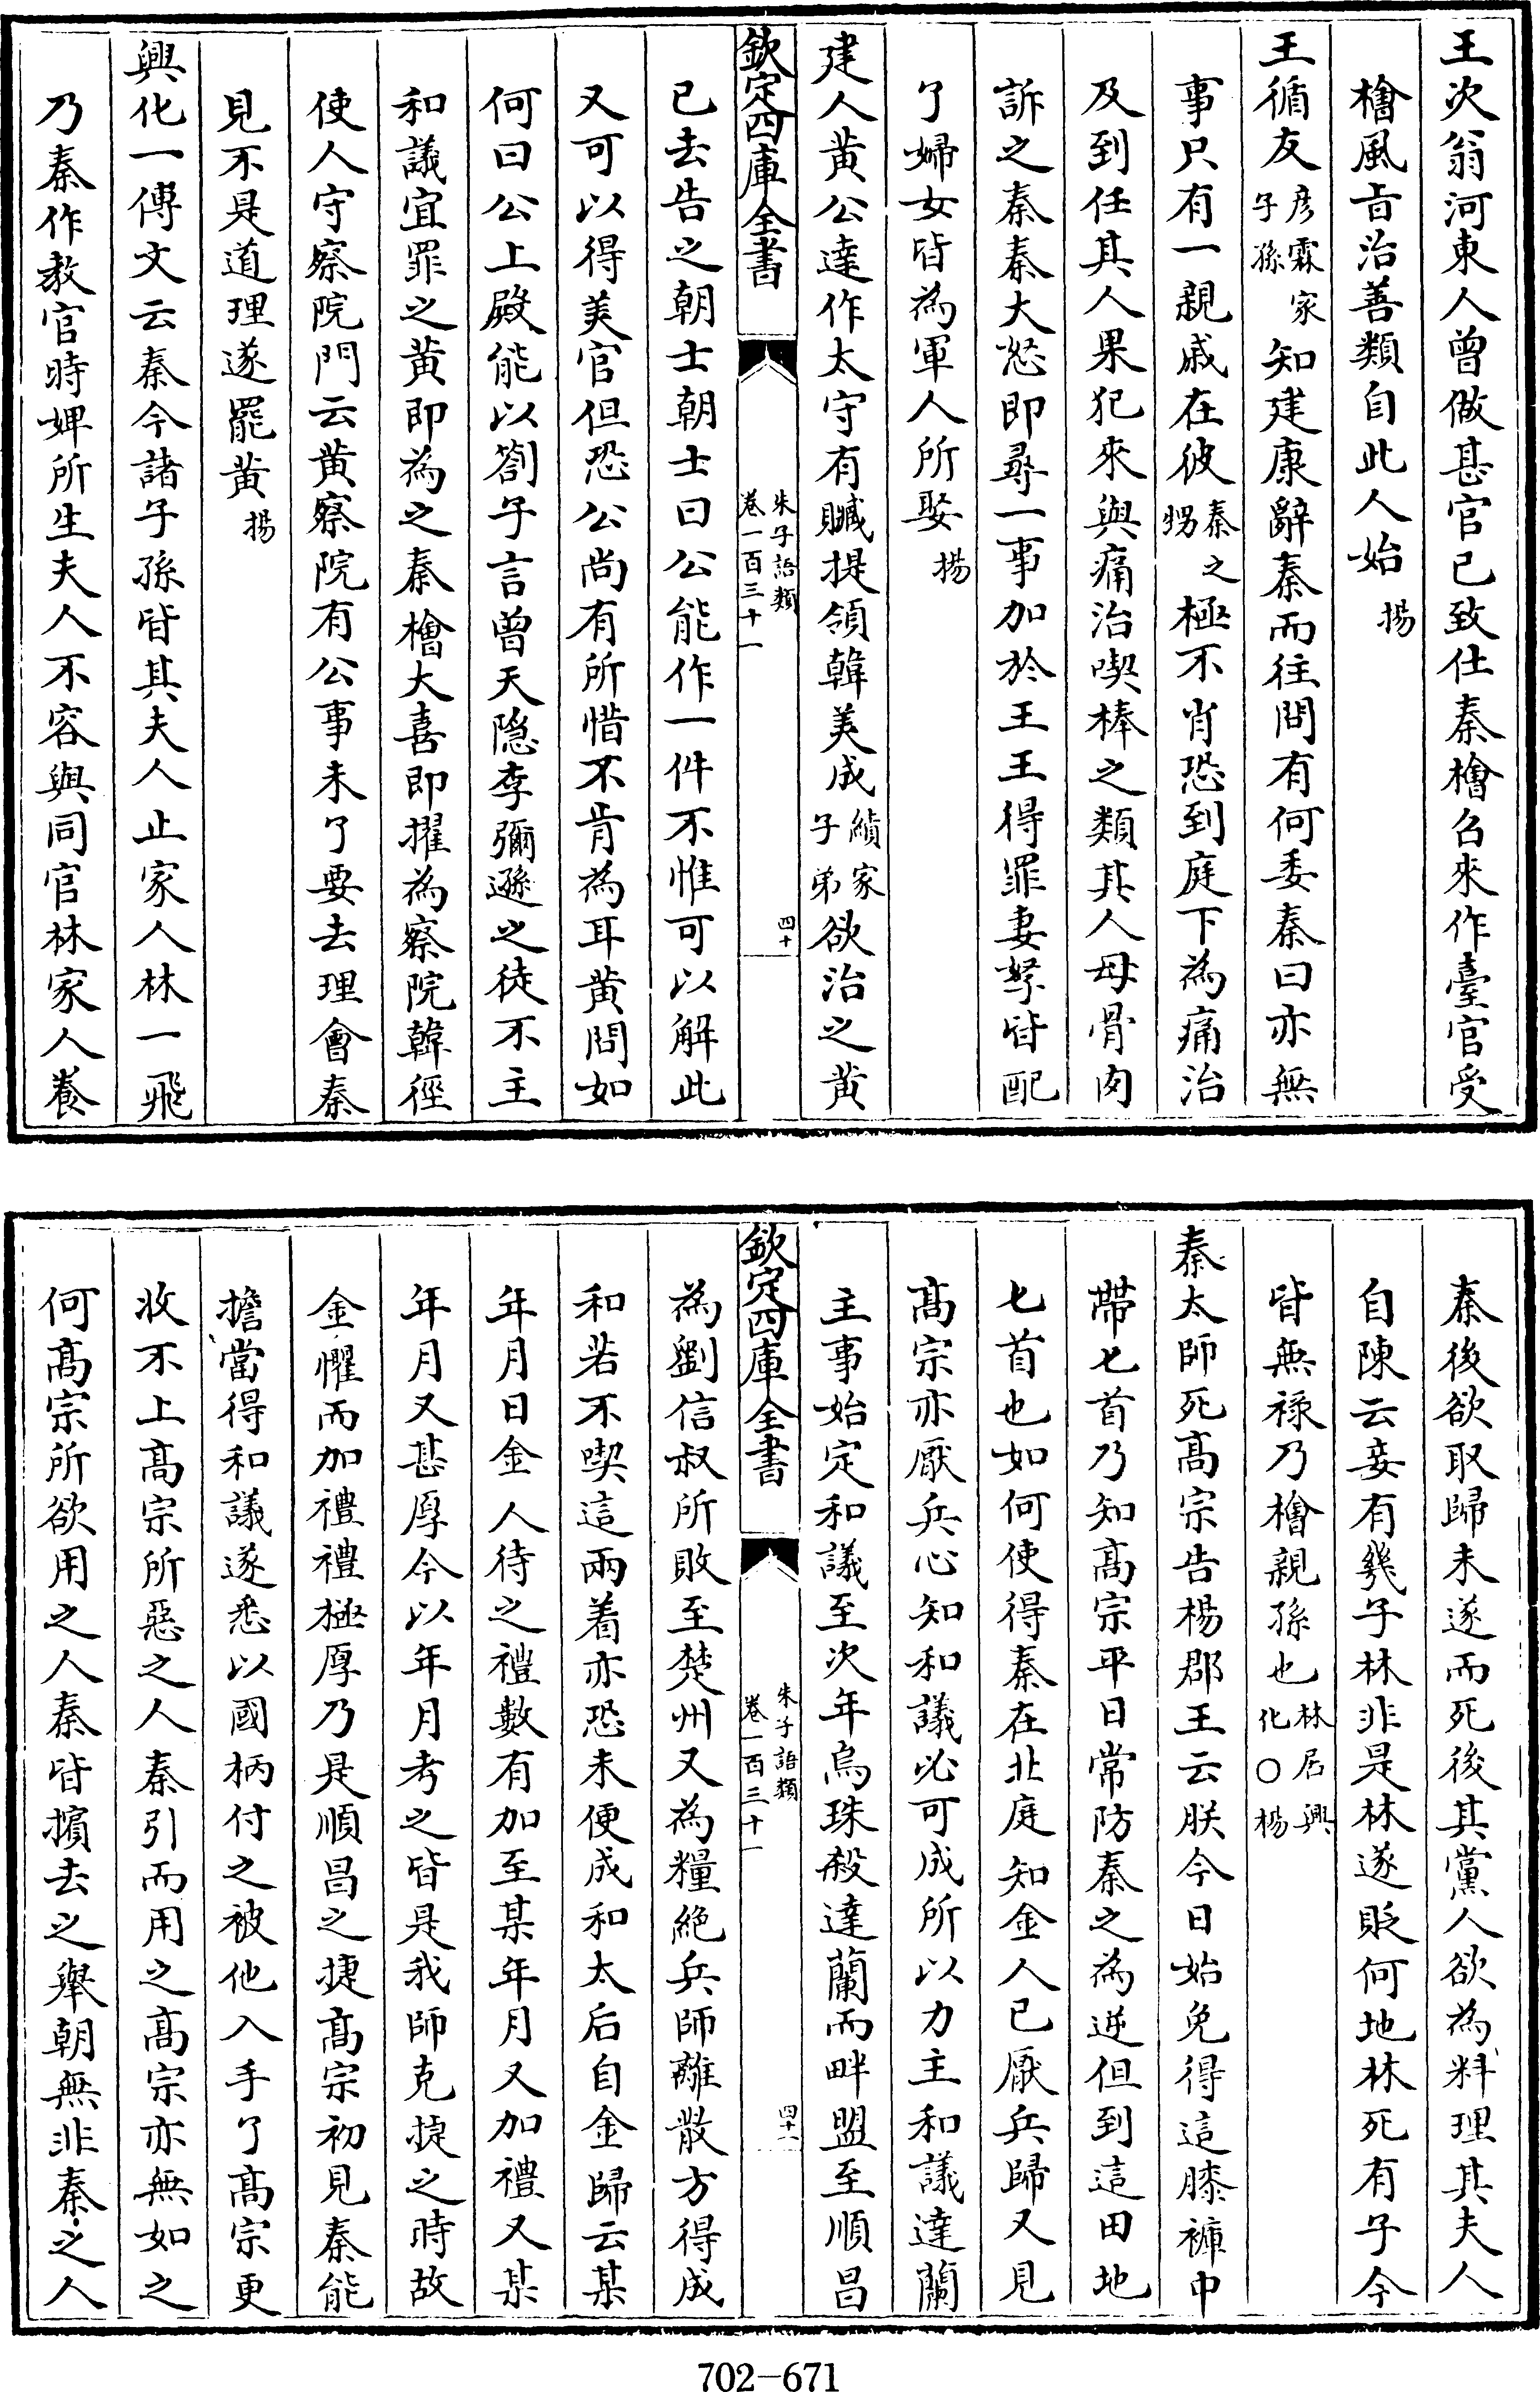 王次翁河東人曾做甚官已致仕秦檜召來作臺官受
檜風旨治善類自此人始揚
王循友彦霖家子孫知建康辭秦而往問有何委秦曰亦無
事只有一親戚在彼秦之甥極不肖恐到庭下為痛治
及到任其人果犯來與痛治喫棒之類其人母骨肉
訴之秦秦大怒即尋一事加於王王得罪妻孥皆配
了婦女皆為軍人所娶揚
建人黄公達作太守有贓提領韓美成績家子弟欲治之黄
欽定四庫全書
朱子語類
卷一百三十一
四十
已去告之朝士朝士曰公能作一件不惟可以解此
又可以得美官但恐公尚有所惜不肯為耳黄問如
何曰公上殿能以劄子言曾天隐李彌遜之徒不主
和議宜罪之黄即為之秦檜大喜即擢為察院韓徑
使人守察院門云黄察院有公事未了要去理會秦
見不是道理遂罷黄揚
興化一傳文云秦今諸子孫皆其夫人止家人林一飛
乃秦作教官時婢所生夫人不容與同官林家人養
秦後欲取歸未遂而死後其黨人欲為料理其夫人
自陳云妾有幾子林非是林遂貶何地林死有子今
皆無祿乃檜親孫也林居興化○楊
秦太師死高宗告楊郡王云朕今日始免得這膝褲中
帶匕首乃知高宗平日常防秦之為逆但到這田地
匕首也如何使得秦在北庭知金人已厭兵歸又見
高宗亦厭兵心知和議必可成所以力主和議達蘭
主事始定和議至次年烏珠殺達蘭而畔盟至順昌
欽定四庫全書
朱子語類
卷一百三十一
四十一
為劉信叔所敗至楚州又為糧絶兵師離散方得成
和若不喫這兩着亦恐未便成和太后自金歸云某
年月日金人待之禮數有加至某年月又加禮又某
年月又甚厚今以年月考之皆是我師克捷之時故
金懼而加禮禮極厚乃是順昌之捷高宗初見秦能
擔當得和議遂悉以國柄付之被他入手了高宗更
收不上高宗所惡之人秦引而用之高宗亦無如之
何高宗所欲用之人秦皆擯去之舉朝無非秦之人
702-671